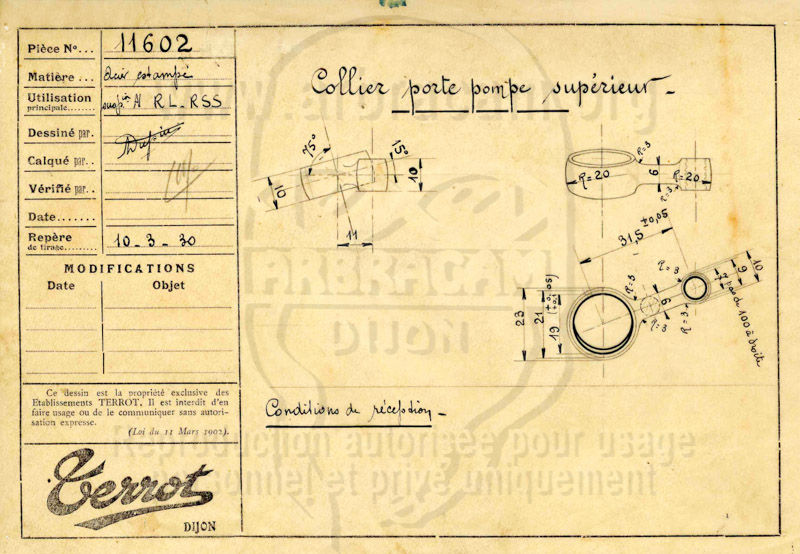 Pièce No... 11602
Matière... acier estampé
Utilisation principale... RL_RSS
Dessiné par.
Calqué par..
Vérifié par..
Date.......
Repère de tirage......... 10_3_30
MODIFICATIONS
Date Objet
Ce dessin est la propriété exclusive des
Etablissements TERROT. Il est interdit d'en
faire usage ou de le communiquer sans autori-
sation expresse.
(Loi du 11 Mars 1902).
Terrot
DIJON
Collier porte pompe supérieur_
75°
15°
10
10
11
R=3
R=20
6
R=3
R=20
31,5 ±0,05
R=3
R=3
10
9
7 pas de 100 à droite
23
21
19
6
R=3
R=3
Conditions de réception_
www.arbracam.org
ARBRACAM
DIJON
Reproduction autorisée pour usage
personnel et privé uniquement